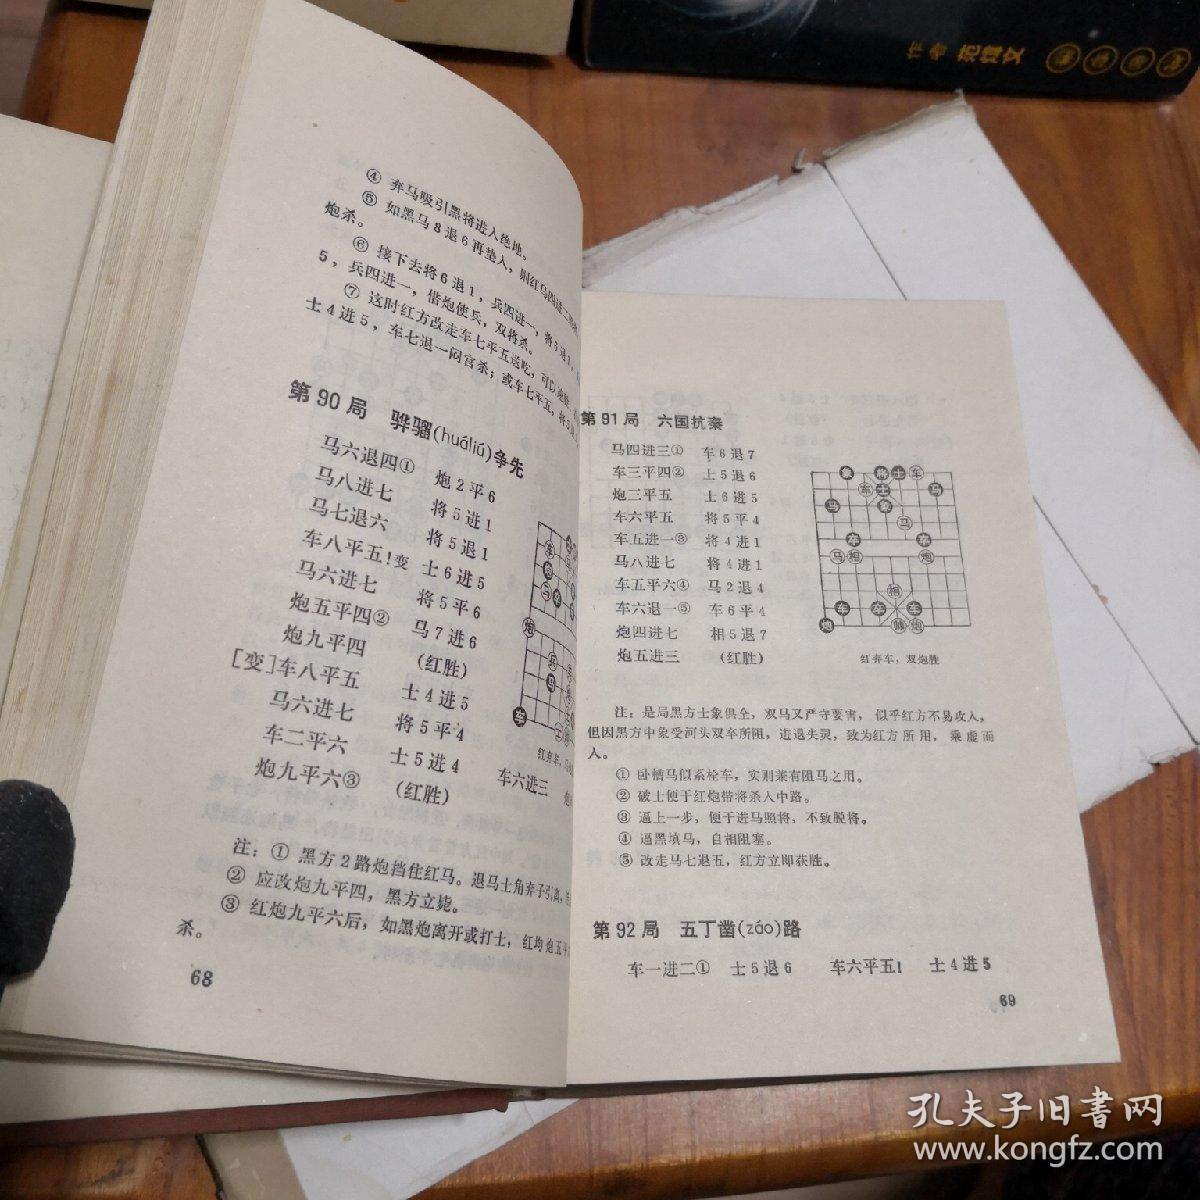 作者 范继文
④ 弃马吸引黑将进入绝地。
⑤ 如黑马8退6再垫入，则红马四进二
炮杀。
⑥ 接下去将6退1，兵四进一，将5退1，
5，兵四进一，借炮使兵，双将杀。
⑦ 这时红方改走车七平五送吃，可以
士4进5，车七退一闷宫杀；或车七平五，将5
第90局 骅骝(huáliú)争先
马六退四① 炮2平6
马八进七 将5进1
马七退六 将5退1
车八平五！变 士6进5
马六进七 将5平6
炮五平四② 马7进6
炮九平四 (红胜)
[变]车八平五 士4进5
马六进七 将5平4
车二平六 士5进4 车六进三
炮九平六③ (红胜)
红弃车，
注：① 黑方2路炮挡住红马。退马士角弃子引离，
② 应改炮九平四，黑方立毙。
③ 红炮九平六后，如黑炮离开或打士，红均炮五平
杀。
68
第91局 六国抗秦
马四进三① 车6退7
车三平四② 士5退6
炮三平五 士6进5
车六平五 将5平4
车五进一③ 将4进1
马八进七 将4进1
车五平六④ 马2退4
车六退一⑤ 车6平4
炮四进七 相5退7
炮五进三 (红胜)
红弃车，双炮胜
注：是局黑方士象俱全，双马又严守要害，似乎红方不易攻入，
但因黑方中象受河头双卒所阻，进退失灵，致为红方所用，乘虚而
入。
① 卧槽马似系拴车，实则兼有阻马之用。
② 破士便于红炮带将杀入中路。
③ 逼上一步，便于进马照将，不致脱将。
④ 逼黑填马，自相阻塞。
⑤ 改走马七退五，红方立即获胜。
第92局 五丁凿(záo)路
车一进二① 士5退6 车六平五！ 士4进5
69
孔夫子旧書网
www.kongfz.com